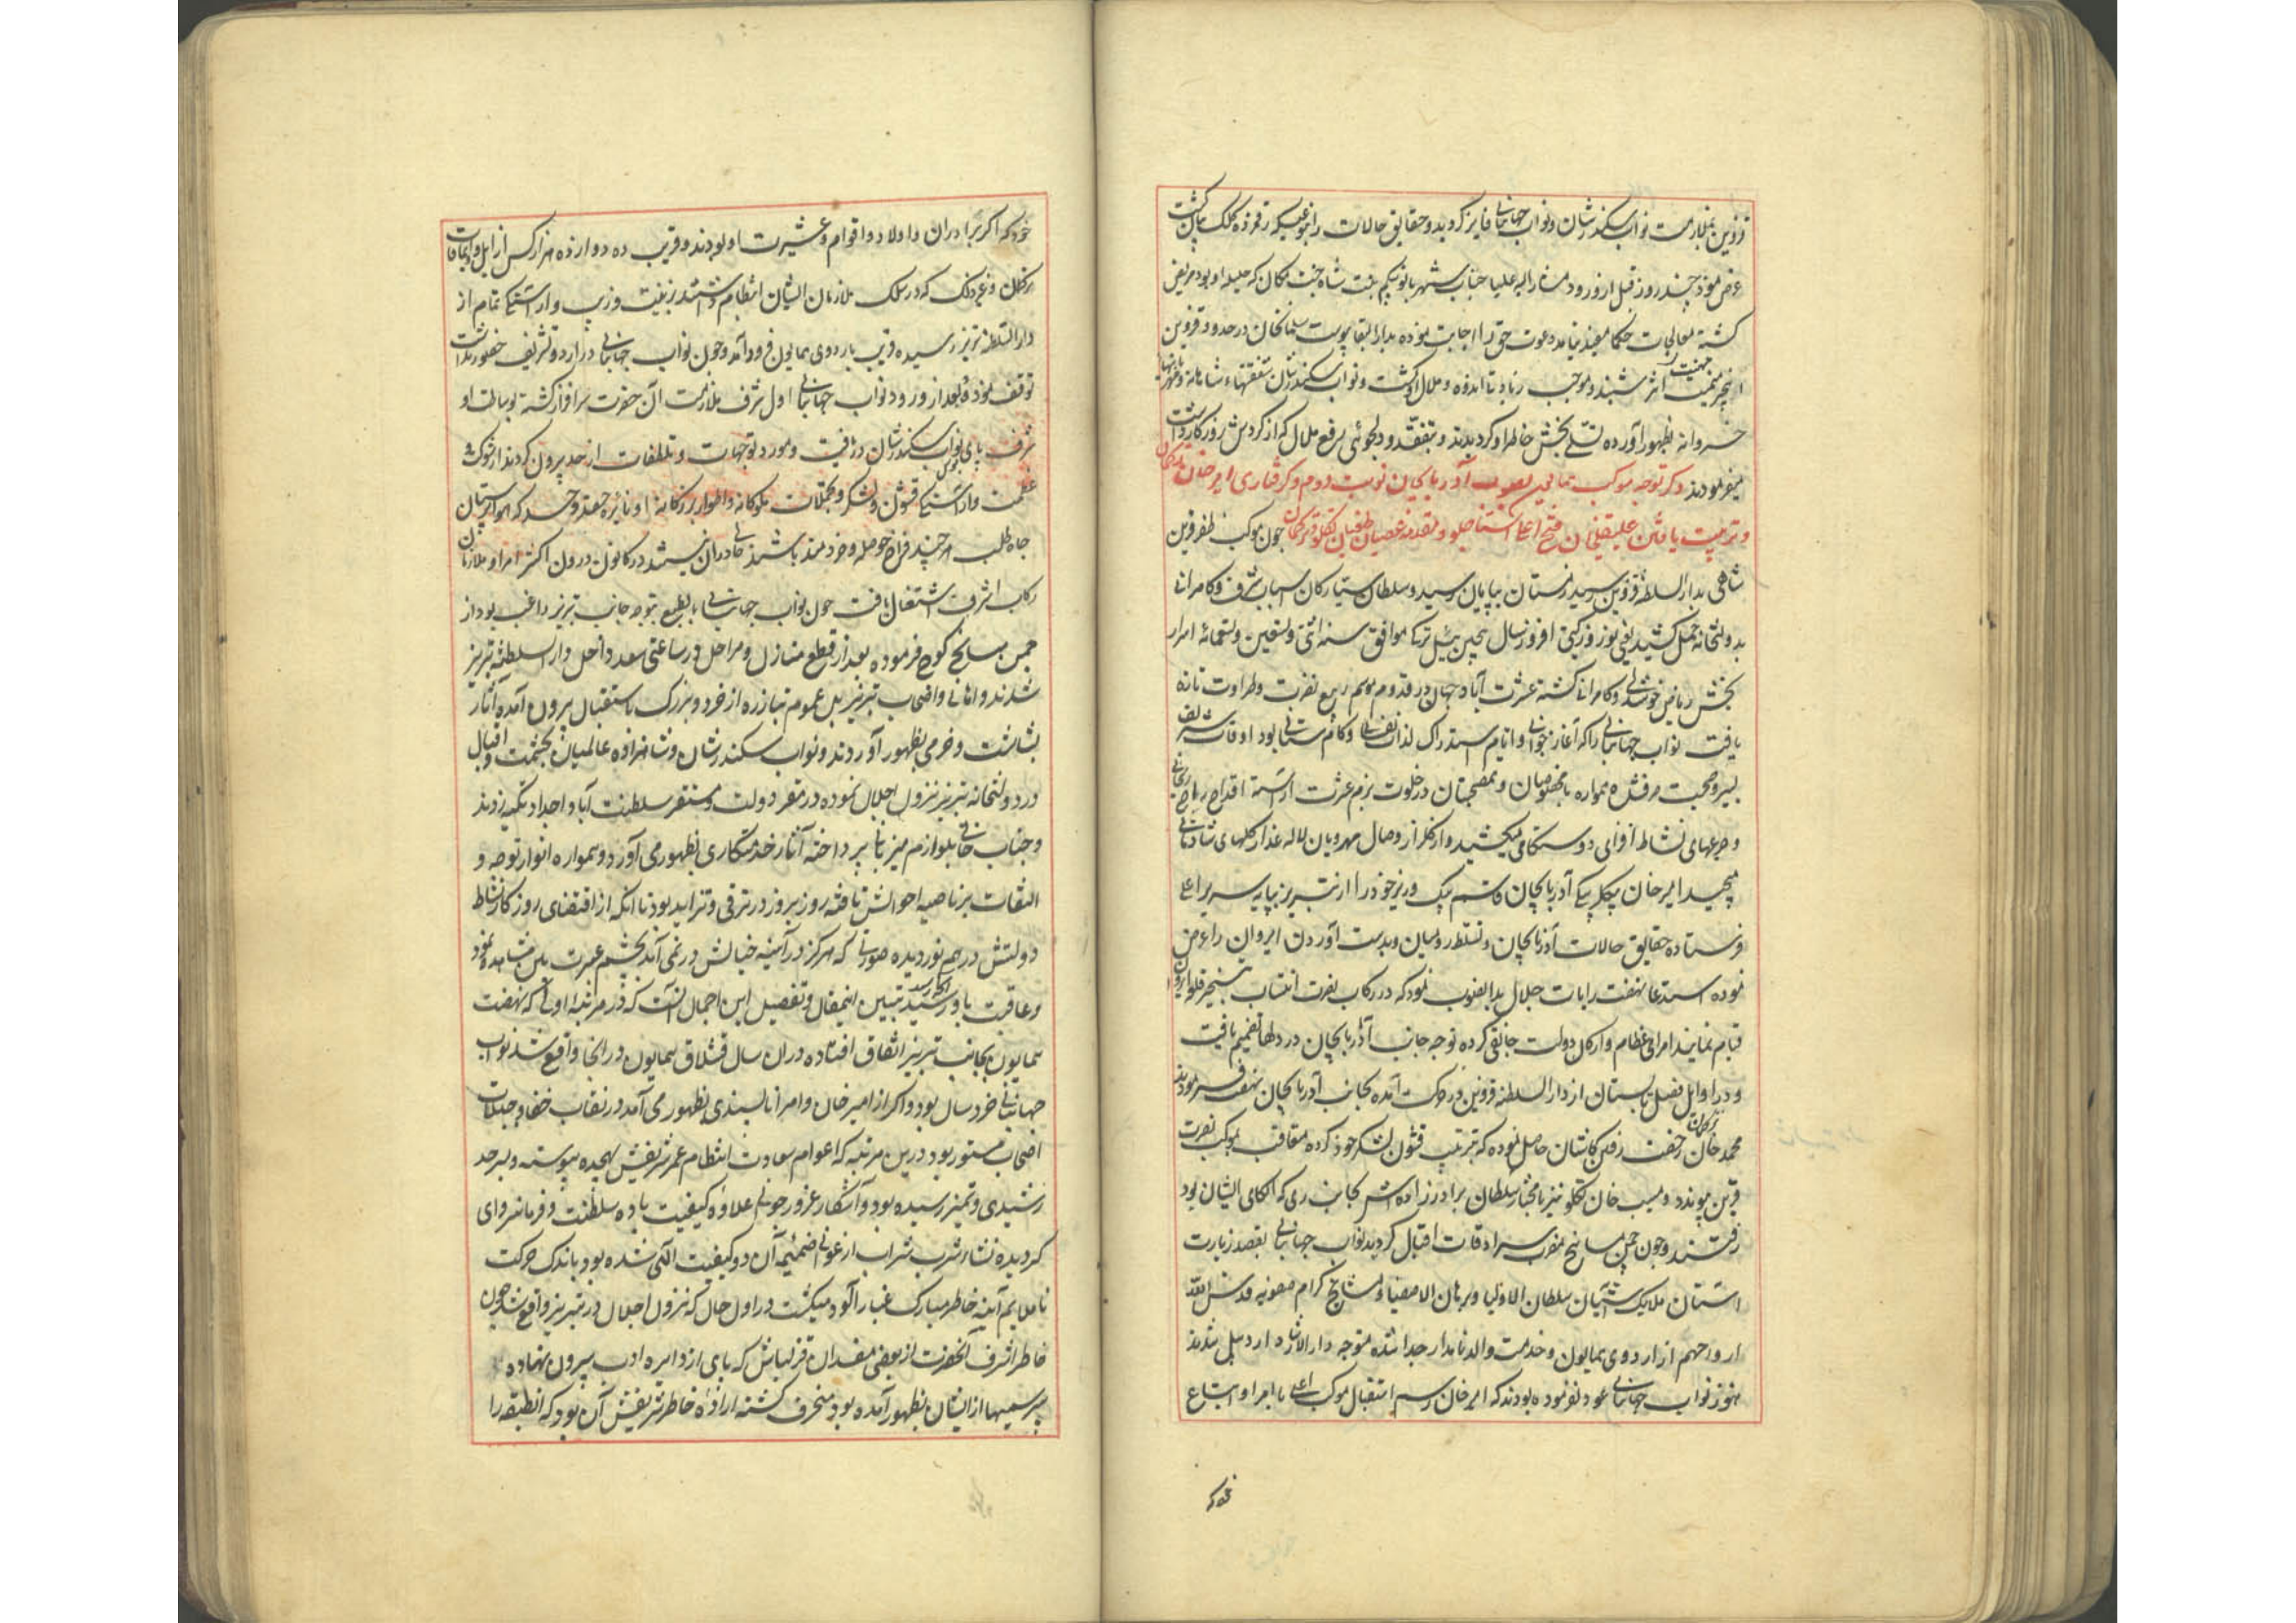 قزوین بملازمت نواب سکندرشان و نواب جهانبانی فایز گردید و حقایق حالات را بنوعیکه رقمزده کلک بیان گشت
عرض نمود چند روز قبل از ورود مشار الیه علیا جناب شهربانو بیکم بنت شاه جنت مکان که حلیله او بود مریض
کشته معالجات حکما مفید نیامد دعوت حق را اجابت نموده بدار البقا پیوست سلمانخان در حدود قزوین
این خبر اثر شنید و موجب زیادتی اندوه و ملال او کشت و نواب سکندرشان شفقتهاء شاهانه
خسروانه بظهور آورده تسلی بخش خاطر او کردیدند و بتفقد و دلجوئی رفع ملال که از کردش روزکار داشت
میفرمودند ذکر توجه موکب همایون بصوب آذربایجان نوبت دوم و کرفتاری امیر خان ترکمان
و تربیت یافتن علیقلیخان فتح اغلی استاجلو و مقدمه عصیان و طغیان تکلو و ترکمان چون موکب ظفر قرین
شاهی بدار السلطنه قزوین رسید زمستان بپایان رسید و سلطان سیارکان اسباب شرف و کامرانی
بدولتخانه حمل کشید یعنی نوروز کیتی افروز سال پیچین ئیل ترکی موافق سنه اثنی و تسعین و تسعمائه اسرار
بخش ریاض خوشدلی و کامرانی کشته عشرت آباد جهان در قدوم موسم ربیع نضرت و طراوت تازه
یافت نواب جهانبانی را که آغاز جوانی و ایام استدراک لذات نفسانی و کام ستانی بود اوقات شریف
بسیر و صحبت میفرمود همواره با مخصوصان و همصحبتان در خلوت بزم عشرت آراسته اقداح راح ریحانی
و جرعهای نشاط افزای دوستکامی میکشید و از گلزار وصال مهرویان لاله عذار کلهای شادمانی
میچید امیر خان بیکلربیکی آذربایجان قاسم بیک وزیر خود را از تبریز بپایه سریر اعلی
فرستاده حقایق حالات آذربایجان و تسلط رومیان و بدست آوردن ایروان را عرض
نموده استدعا نهضت رایات جلال بدانصوب نمود که در رکاب نصرت انتساب بتسخیر قلعه ایروان
قیام نمایند امرای عظام و ارکان دولت جانقی کرده توجه جانب آذربایجان در دلها تصمیم یافت
و در اوایل فصل تابستان از دار السلطنه قزوین در حرکت آمده بجانب آذربایجان نهضت فرمودند
محمد خان ترکمان رخصت رفتن کاشان حاصل نموده که ترتیب قشون و لشکر خود کرده متعاقب بموکب نصرت
قرین پیوندد و مسیب خان تکلو نیز با مختار سلطان برادرزاده اش بجانب ری که الکای ایشان بود
رفتند و چون چمن میانج مضرب سرادقات اقبال کردید نواب جهانبانی بقصد زیارت
آستان ملایک آشیان سلطان الاولیا و برهان الاصفیا و مشایخ کرام صفویه قدس الله
ارواحهم از اردوی همایون و خدمت والد نامدار جدا شده متوجه دار الارشاد اردبیل شدند
هنوز نواب جهانبانی عود نفرموده بودند که امیر خان برسم استقبال موکب اعلی با امرا و اتباع
خود که
خود که اکثر برادران و اولاد و اقوام و عشیرت او بودند و قریب ده دوازده هزار کس از ایل و اویماقات
ترکمان و غیر ذلک که در سلک ملازمان ایشان انتظام داشتند بزینت و زیب و آراستکی تمام از
دار السلطنه تبریز رسیده قریب باردوی همایون فرود آمد و چون نواب جهانبانی در اردو تشریف حضور نداشت
توقف نمود و بعد از ورود نواب جهانبانی اول شرف ملازمت آن حضرت سرافراز کشته بوساطت او
شرف پای بوس نواب سکندرشان دریافت و مورد توجهات و تلطفات از حد بیرون کردید از شوکت و
عظمت و آراستکی قشون و لشکر و تجملات ملوکانه و اطوار بزرکانه او نایره حقد و حسد که هواپرستان
جاه طلب هر چند فراخ حوصله و خردمند باشند خالی از آن نیستند در کانون درون اکثر امرا و ملازمان
رکاب اشرف اشتعال یافت چون نواب جهانبانی بالطبع بتوجه جانب تبریز راغب بود از
چمن میانج کوچ فرموده بعد از قطع منازل و مراحل در ساعتی سعد داخل دار السلطنه تبریز
شدند و اهالی و اصحاب تبریز بل عموم تبارزه از خرد و بزرک باستقبال بیرون آمده آثار
بشاشت و خرمی بظهور آوردند و نواب سکندرشان و شاهزاده عالمیان بحشمت و اقبال
در دولتخانه تبریز نزول اجلال نموده در مقر دولت و مستقر سلطنت آبا و اجداد تکیه زدند
و جناب خانی بلوازم میزبانی پرداخته آثار خدمتکاری بظهور می آورد و همواره انوار توجه و
التفات بر ناصیه احوالش تافته روز بروز در ترقی و تزاید بود تا آنکه از اقتضای روزکار نشاط
دولتش در هم نوردیده صورتی که هرکز در آیینه خیالش در نمی آمد بچشم عبرت بین مشاهده نمود
و عاقبت باو رسید آنچه رسید تبیین اینمقال و تفصیل این اجمال آنست که در مرتبه اولی که نهضت
همایون بجانب تبریز اتفاق افتاده در آن سال قشلاق همایون در آنجا واقع شد نواب
جهانبانی خرد سال بود و اکر از امیر خان و امرا ناپسندی بظهور می آمد در نقاب خفا و جلباب
اختجاب مستور بود درین مرتبه که اعوام سعادت انتظام عمر شریفش بهجده پیوسته و بسر حد
رشیدی و تمیز رسیده بود و آشکار غرور جوانی علاوه کیفیت باده سلطنت و فرمانروای
کردیده نشاء شرب شراب ارغوانی ضمیمه آن دو کیفیت الکی شده بود باندک حرکت
ناملایم آیینه خاطر مبارک غبارآلود میکشت در اول حال که نزول اجلال در تبریز واقع شد چون
خاطر اشرف آنحضرت از بعضی مفسدان قزلباش که پای از دایره ادب بیرون نهاده
بی رسمیها از ایشان بظهور آمده بود منحرف کشته اراده خاطر شریفش آن بود که آنطبقه را